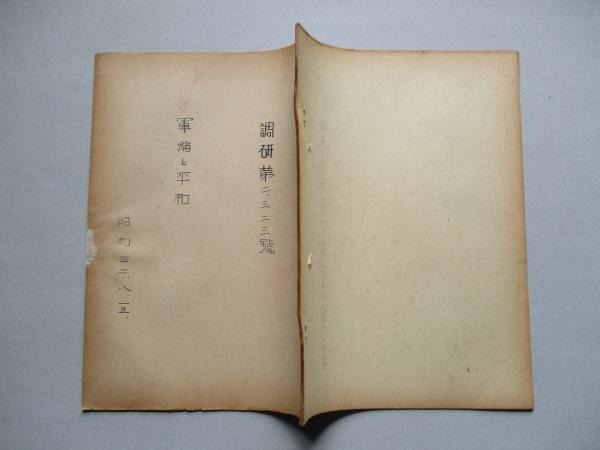 調研第二、三二三號
軍縮と平和
昭和三二、八、一五、